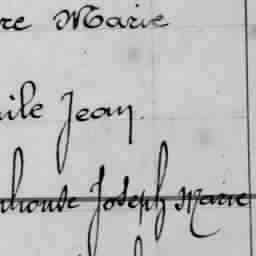 re Marie
ile Jean.
phonse Joseph Marie